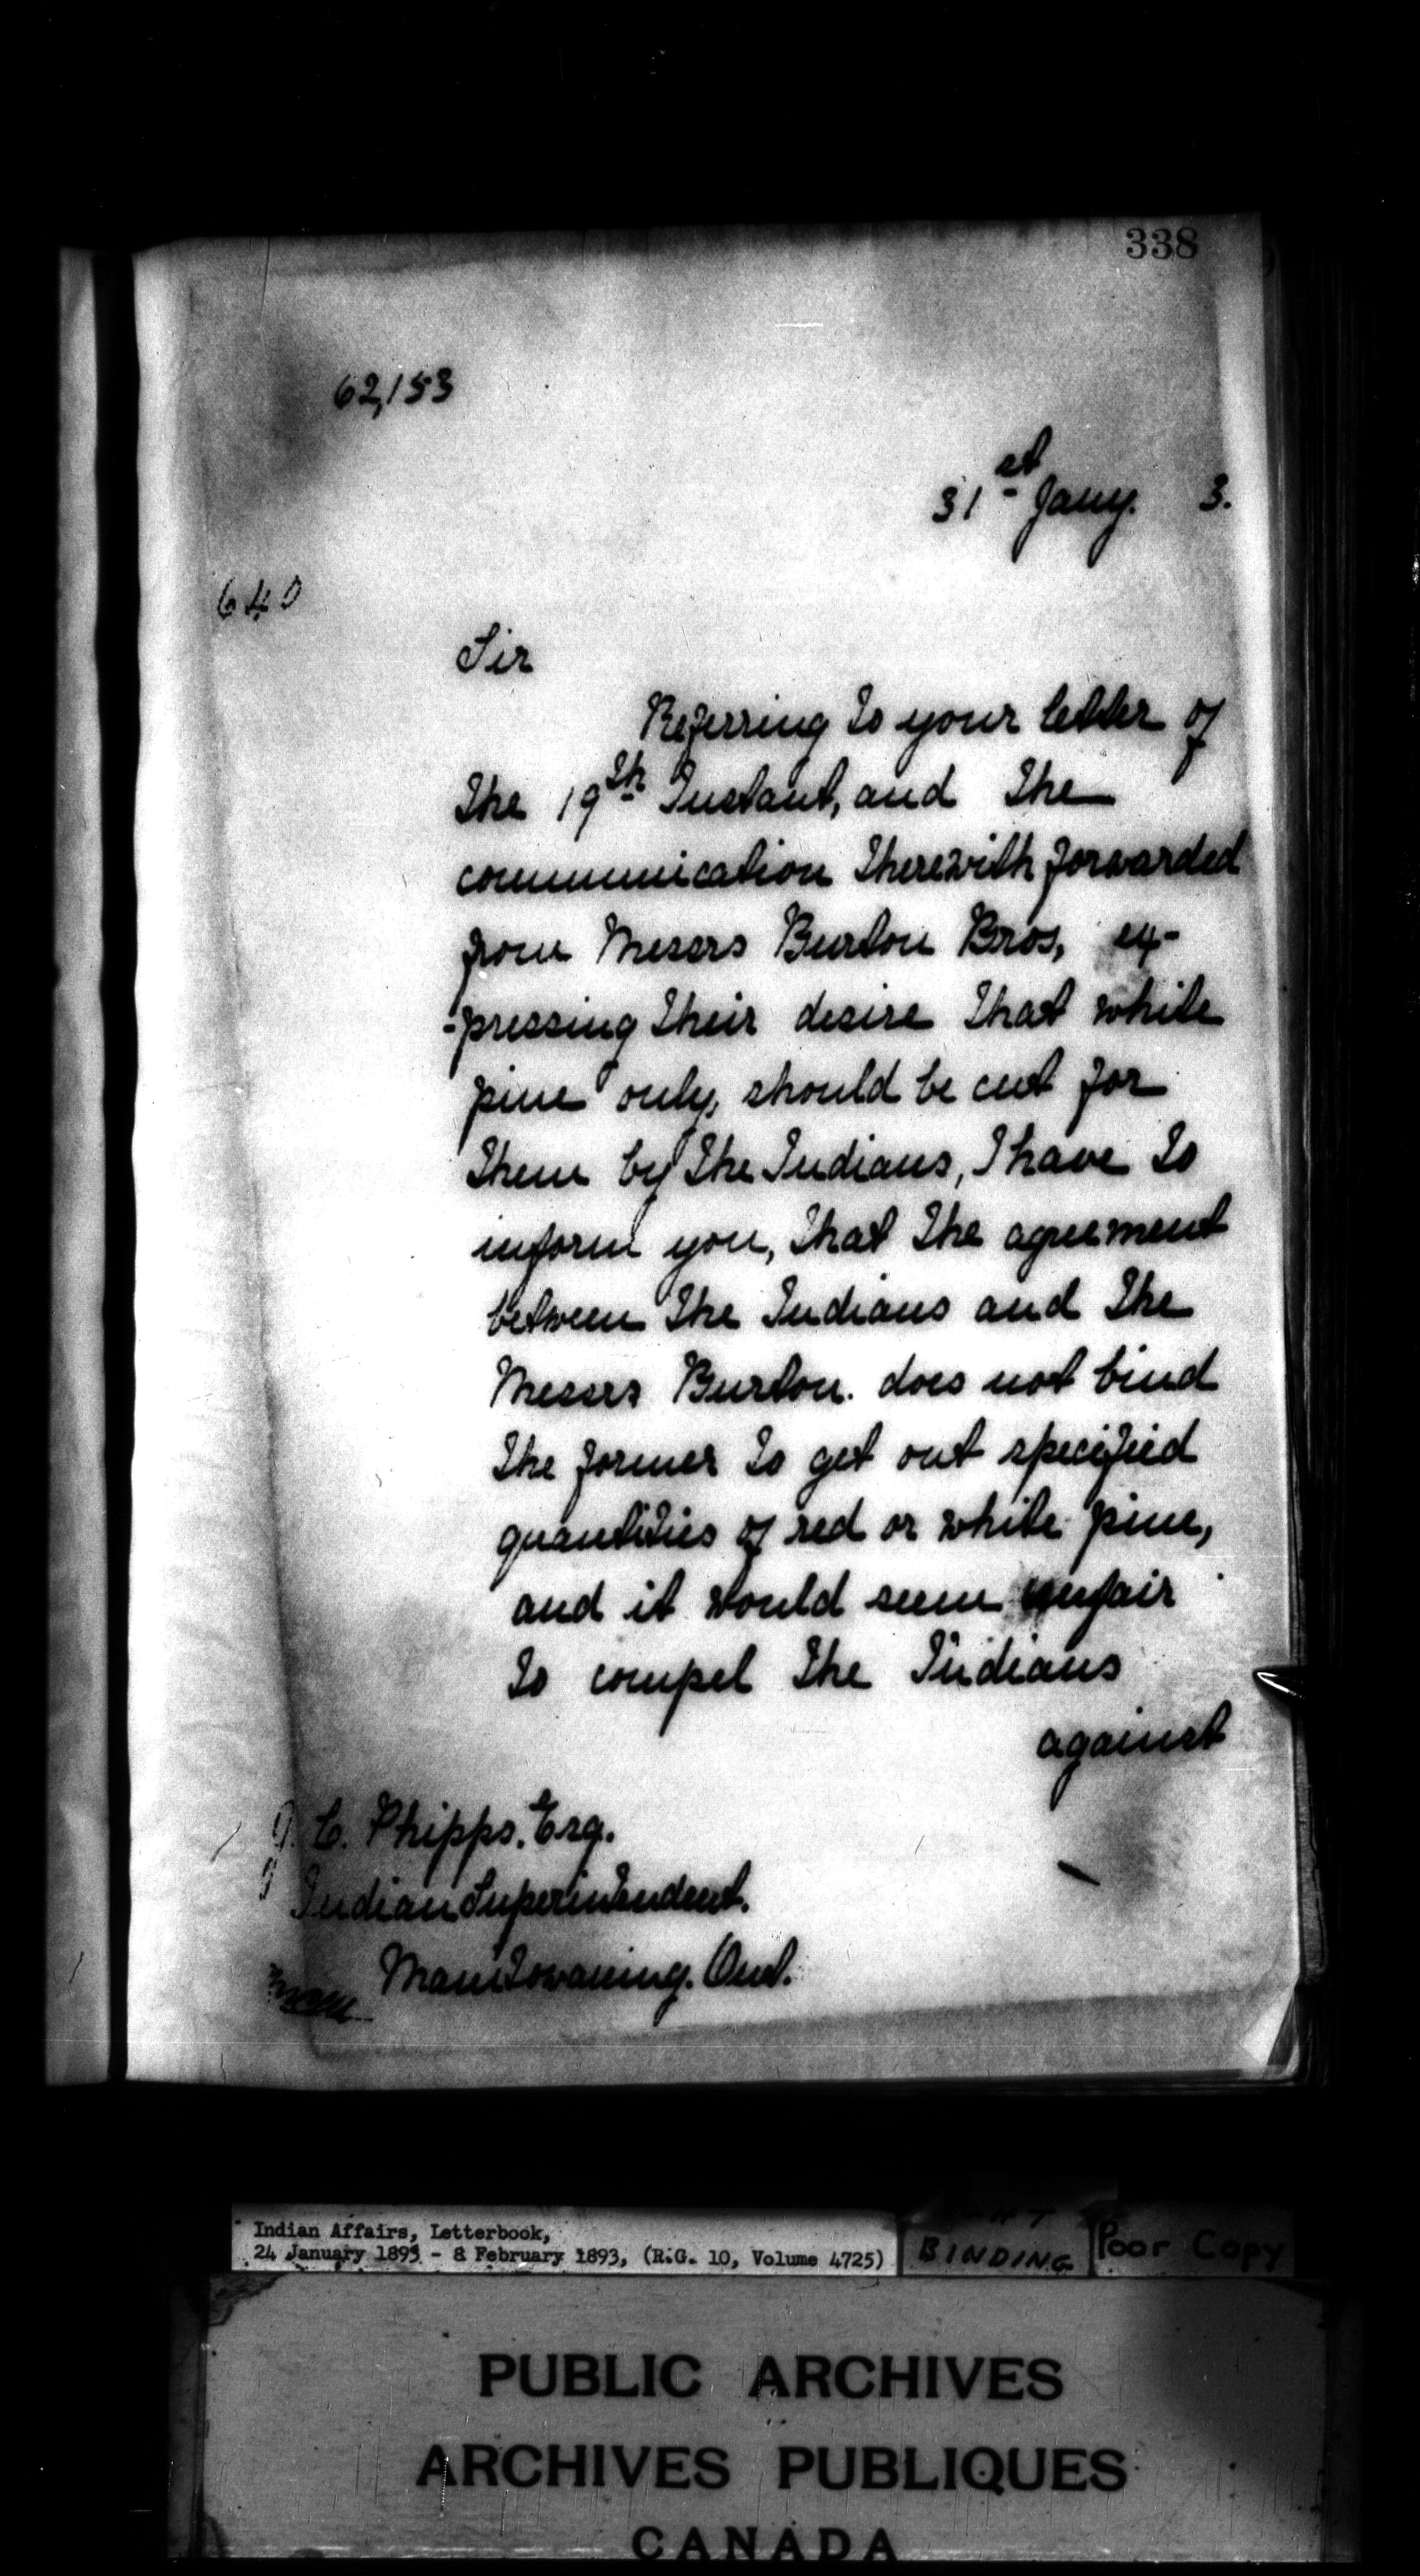 338
62,153
31st Jany. 3.
640
Sir
Referring to your letter of
the 19th Instant, and the
communication therewith forwarded
from Messrs Burton Bros, ex-
-pressing their desire that white
pine only, should be cut for
them by the Indians, I have to
inform you, that the agreement
between the Indians and the
Messrs Burton. does not bind
the former to get out specified
quantities of red or white pine,
and it would seem unfair
to compel the Indians
against
J. C. Phipps, Esq.
Indian Superintendent.
Manitowaning. Ont.
Indian Affairs, Letterbook,
24 January 1893 - 8 February 1893, (R.G. 10, Volume 4725)
BINDING
Poor Copy
PUBLIC ARCHIVES
ARCHIVES PUBLIQUES
CANADA